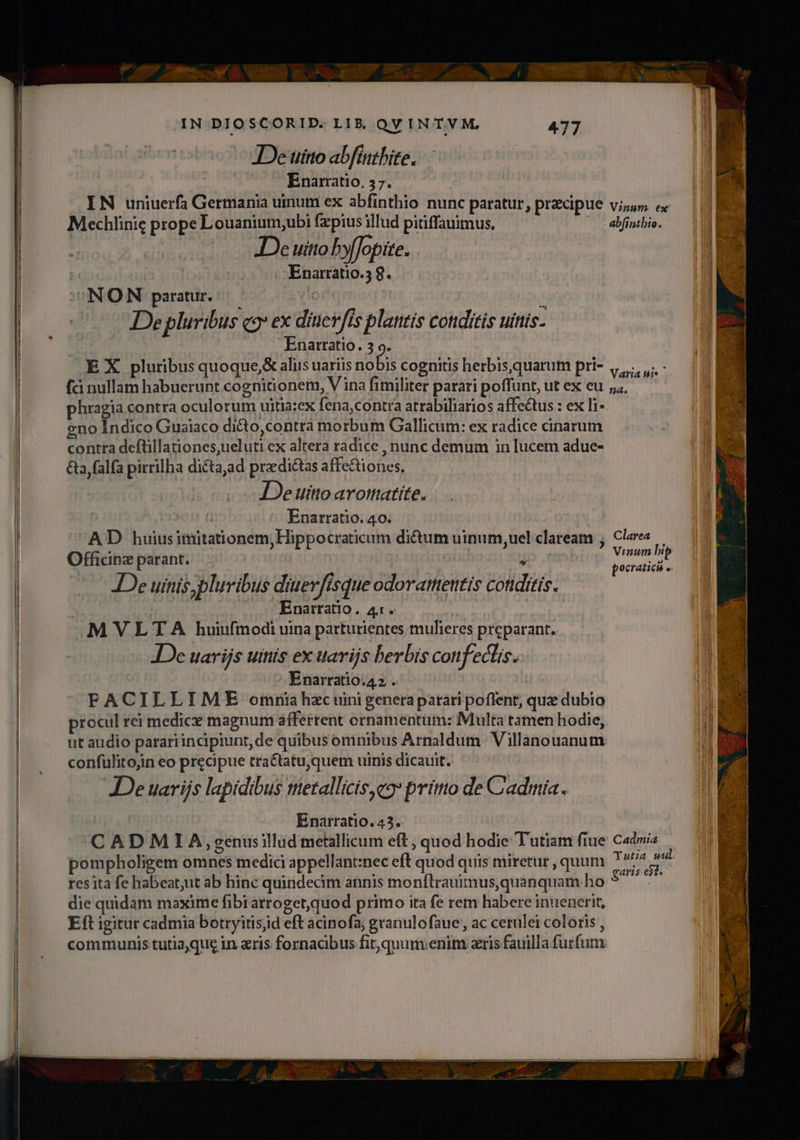 IN DIOSCORID. LIB. QVINTVM. 477
De uino abſinthite.
Enarratio. 37.
IN uniuerſa Germania uinum ex abſinthio nunc paratur, præcipue
Vinum ex
Mechlinię prope Louanium,ubi ſæpius illud pitiſſauimus,
abſinthio.
De uino hyſſopite.
Enarratio.38.
NON paratur.
De pluribus & ex diuerſis plantis conditis uinis.
Enarratio. 39.
EX pluribus quoque,& alijs uariis nobis cognitis herbis,quarum pri-
Varia ui-
ſci nullam habuerunt cognitionem, Vina ſimiliter parari poſſunt, ut ex eu
na.
phragia contra oculorum uitia:ex ſena,contra atrabiliarios affectus : ex li-
gno Indico Guaiaco dicto,contra morbum Gallicum: ex radice cinarum
contra deſtillationes,ueluti ex altera radice , nunc demum in lucem aduec-
cta,ſalſa pirrilha dicta,ad prædictas affectiones.
De uino aromatite.
Enarratio. 40.
AD huius imitationem,Hippocraticum dictum uinum,uel claream ,
Clarea
Officinæ parant.
Vinum hip
pocraticũ.
De uinis,pluribus diuerſisque odoramentis conditis.
Enarratio. 41.
MVLTA huiuſmodi uina parturientes mulieres preparant.
De uarijs uinis ex uarijs herbis confectis.
Enarratio.42.
FACILLIME omnia hæc uini genera parari poſſent, quæ dubio
procul rei medicæ magnum afferrent ornamentum: Multa tamen hodie,
ut audio parari incipiunt,de quibus omnibus Arnaldum Villanouanum
conſulito,in eo pręcipue tractatu,quem uinis dicauit.
De uarijs lapidibus metallicis,& primo de Cadmia.
Enarratio.43.
CADMIA,genus illud metallicum eſt, quod hodie Tutiam ſiue
Cadmia
pompholigem omnes medici appellant:nec eſt quod quis miretur , quum
Tutia uul
res ita ſe habeat,ut ab hinc quindecim annis monſtrauimus,quanquam ho
garis eſt.
die quidam maxime ſibi arroget,quod primo ita ſe rem habere inuenerit,
Eſt igitur cadmia botryitis,id eſt acinoſa, granuloſaue, ac cerulei coloris ,
communis tutia,quę in æris fornacibus fit,quum enim æris fauilla ſurſum